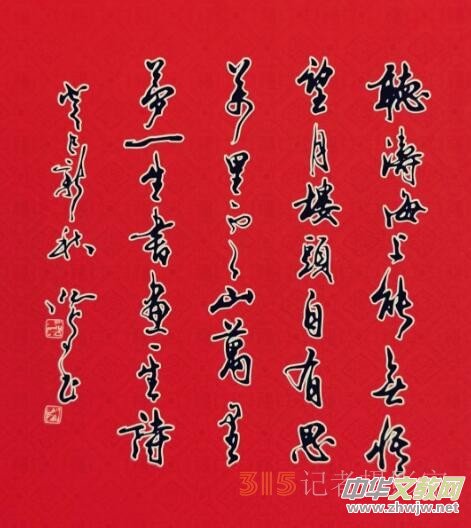 聽濤海上能無悟
望月樓頭自有思
萬里雲山萬里
夢一生書畫一生詩
癸巳新秋
315记者摄影家
中华文教网
www.zhwjw.net